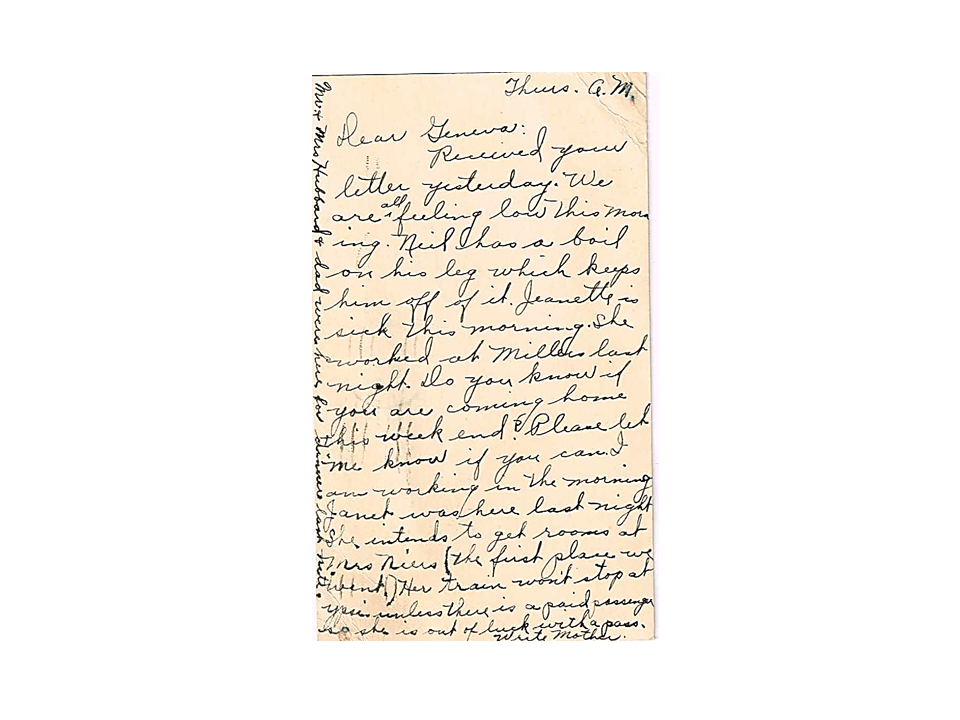 Thurs. A.M.
Dear Geneva:
Received your
letter yesterday. We
are all feeling low this morn
ing. Neil has a boil
on his leg which keeps
him off of it. Jeanette is
sick this morning. She
worked at Millers last
night. Do you know if
you are coming home
this week end? Please let
me know if you can. I
am working in the morning
Janet was here last night
She intends to get rooms at
Mrs Niers (the first place we
went.) Her train won't stop at
ypsi unless there is a paid passenger
so she is out of luck with a pass.
Write Mother.
Mr & Mrs Hubbard & dad were here for dinner last nite.